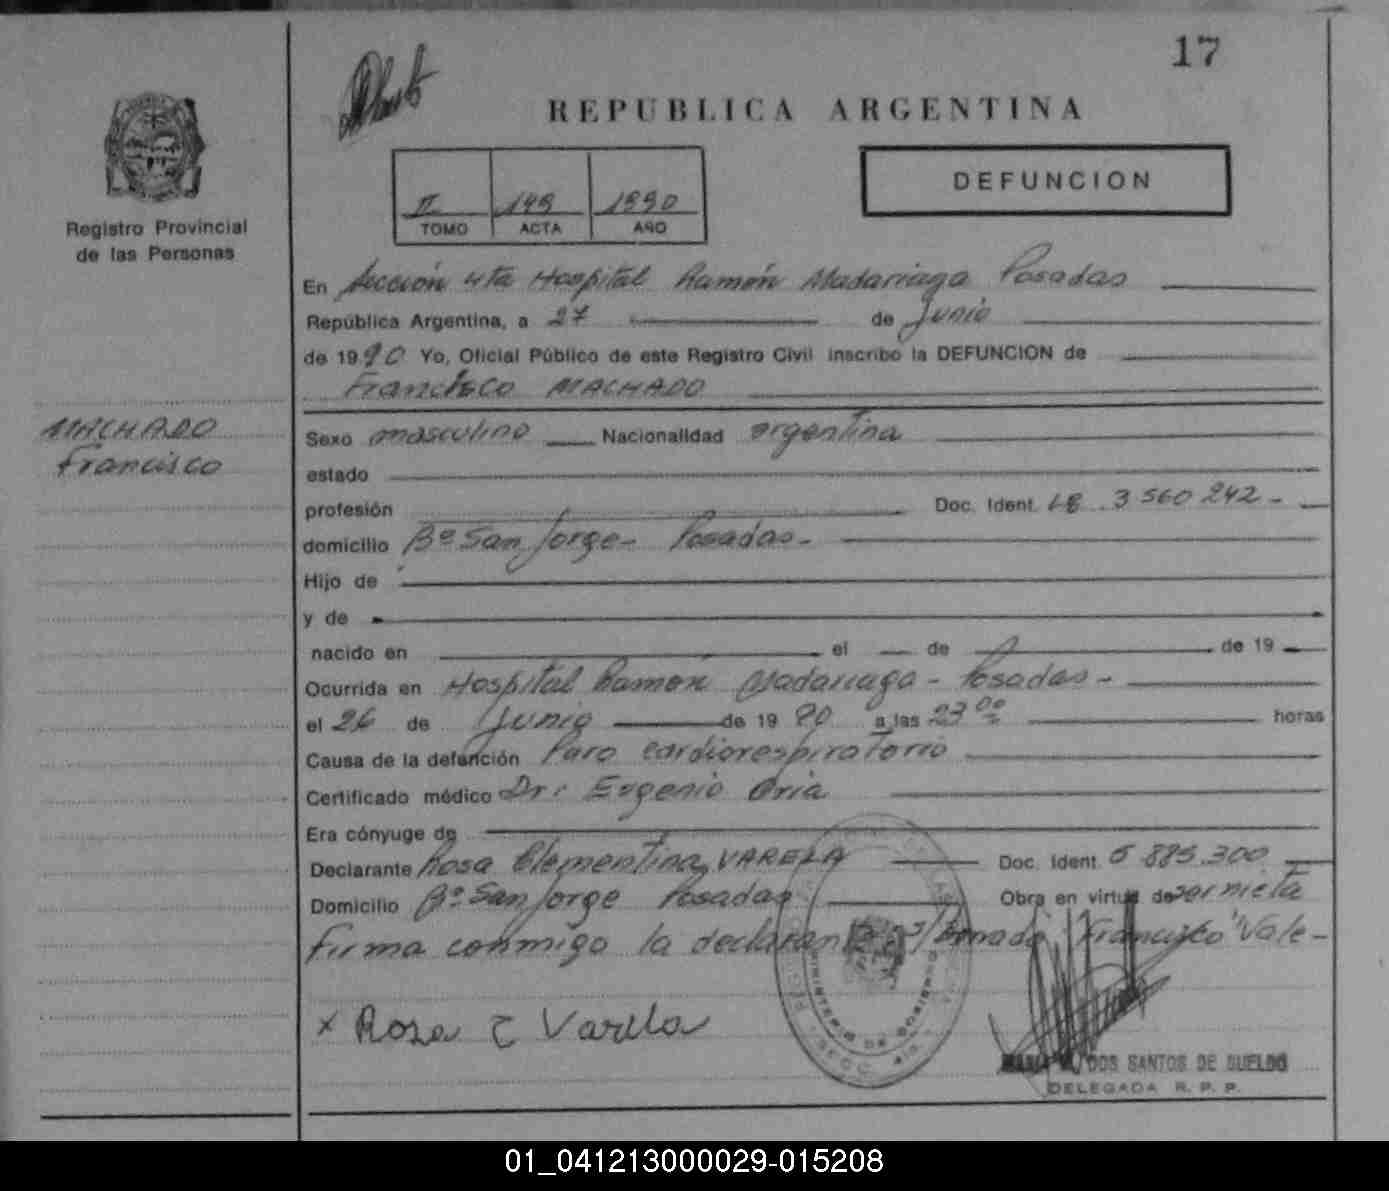 17
REPUBLICA ARGENTINA
II 149 1990
TOMO ACTA AÑO
DEFUNCION
Registro Provincial
de las Personas
En Sección 4ta Hospital Ramón Madariaga Posadas
República Argentina, a 27 de Junio
de 1990 Yo, Oficial Público de este Registro Civil inscribo la DEFUNCION de
Francisco MACHADO
MACHADO
Francisco
Sexo masculino Nacionalidad argentina
estado
profesión Doc. Ident. LE 3 560 242-
domicilio Bº San Jorge- Posadas-
Hijo de
y de
nacido en el de de 19
Ocurrida en Hospital Ramón Madariaga - Posadas-
el 26 de Junio de 1990 a las 23 00 horas
Causa de la defunción Paro cardiorespiratorio
Certificado médico Dr: Eugenio Oria
Era cónyuge de
Declarante Rosa Clementina VARELA Doc. Ident. 5 885.300
Domicilio Bº San Jorge Posadas Obra en virtud de ser nieta
Firma conmigo la declarante s/Borrado "Francisco" Vale-
x Rosa C Varela
MINISTERIO DE GOBIERNO
DOS SANTOS DE DUELDO
DELEGADA R. P. P.
01_041213000029-015208